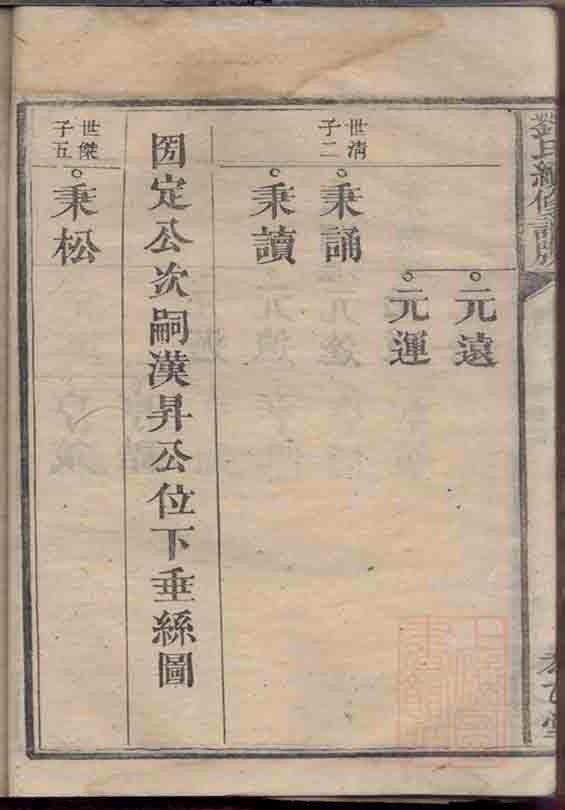 劉氏續修譜牒
元遠
元運
世清
子二
秉誦
秉讀
固定公次嗣漢昇公位下垂絲圖
世傑
子五
秉松